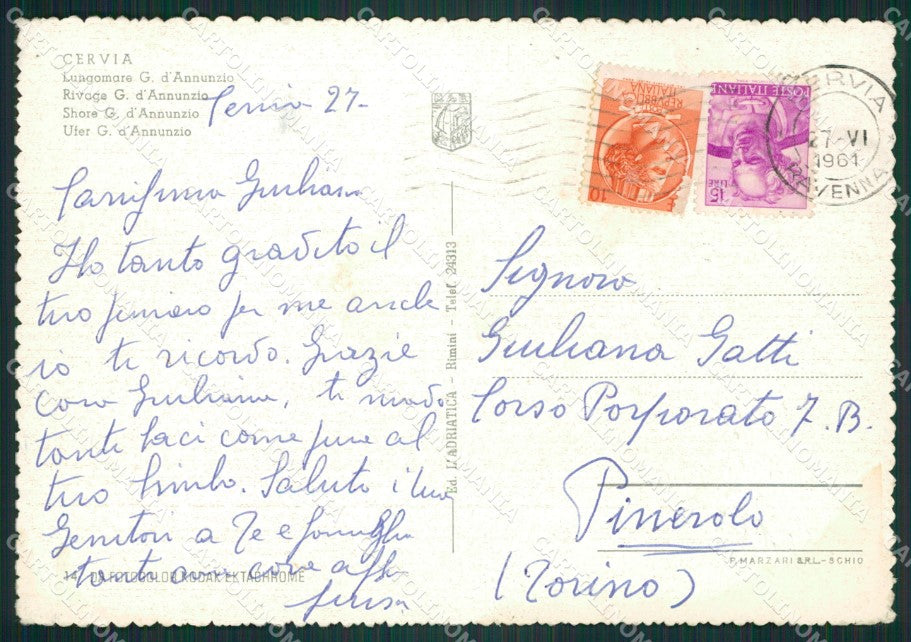 CERVIA
Lungomare G. d'Annunzio
Rivage G. d'Annunzio
Shore G. d'Annunzio
Ufer G. d'Annunzio
Cervia 27-
Carissima Giuliana
Ho tanto gradito il
tuo pensiero per me anche
io ti ricordo. Grazie
cara Giuliana, ti mando
tanti baci come pure al
tuo bimbo. Saluto i tuoi
Genitori a Te e famiglia
tante care
14 - DA FOTOCOLOR KODAK EKTACHROME
Ed. L'ADRIATICA - Rimini - Telef. 24313
REPUBBLICA ITALIANA
L. 10
POSTE ITALIANE
LIRE 15
CERVIA
27-VI
1961
RAVENNA
Signora
Giuliana Gatti
Corso Porporato 7. B.
Pinerolo
(Torino)
F. MARZARI S.R.L. - SCHIO
CARTOLINOMANIA